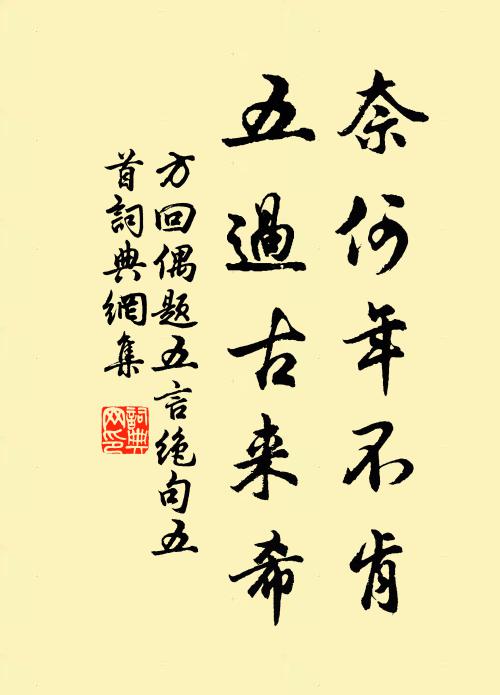 奈何年不肯
五過古来希
方回偶題五言绝句五
首詞典網集
詞典网印